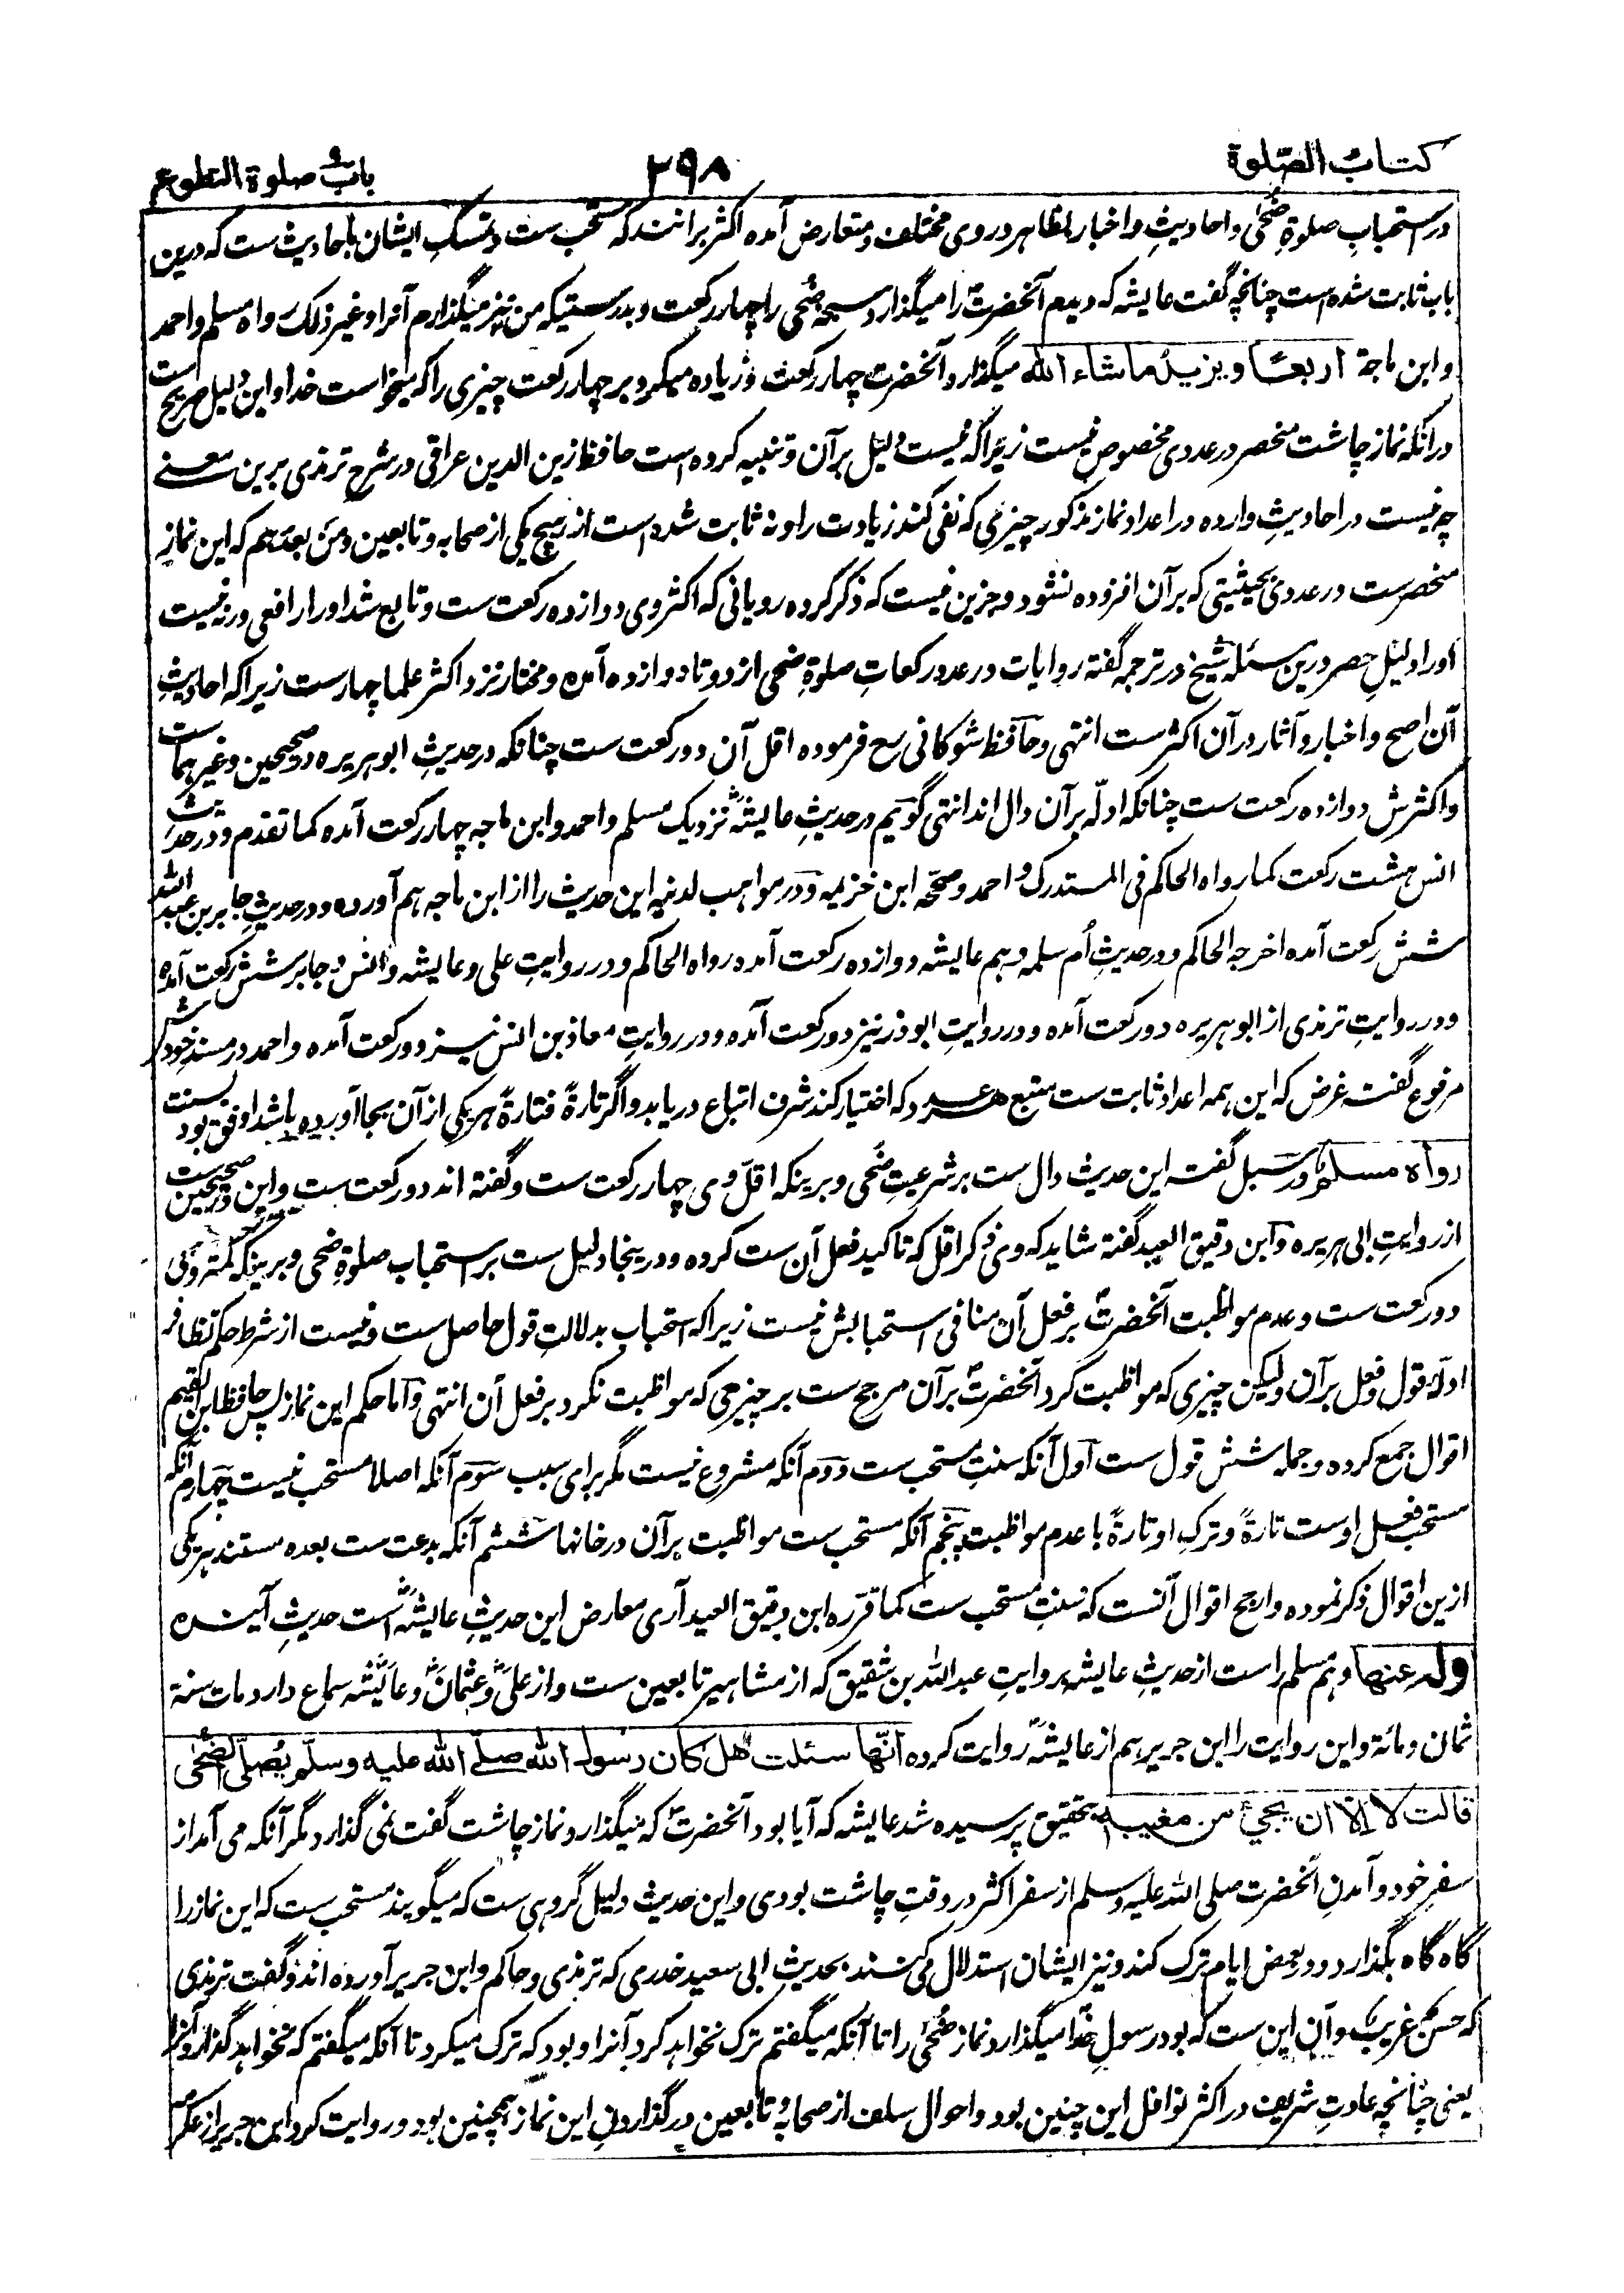 کتاب الصّلوة
۳۹۸
باب صلوة التطوع
در استحبابِ صلوةِ ضُحٰی و احادیثِ و اخبار بظاہر در وی مختلف و متعارض آمده اکثر برانند که مستحب ست و تمسکِ ایشان باحادیث ست که درین
باب ثابت شده است چنانچه گفت عایشه که دیدم آنحضرتؐ را میگذارد سبحهٔ ضُحی را چهار رکعت و بدرستیکه من نیز میگذارم آنرا و غیر ذلک رواه مسلم و احمد
و ابن ماجة اربعًا و یزید ما شاء الله میگذارد آنحضرتؐ چهار رکعت و زیاده میکرد بر چهار رکعت چیزی را که میخواست خدا و این دلیل صریح است
در آنکه نماز چاشت منحصر در عددی مخصوص نیست زیرا که نیست دلیل بر آن و تنبیه کرده است حافظ زین الدین عراقی در شرح ترمذی برین معنے
چه نیست در احادیثِ وارده در اعداد نماز مذکور چیزی که نفی کند زیادت را و نه ثابت شده است از هیچ یکی از صحابه و تابعین و من بعدهم که این نمازِ
منحصرست در عددی بحیثیتی که بر آن افزوده نشود و جز این نیست که ذکر کرده رویانی که اکثر وی دوازده رکعت ست و تابع شد او را رافعی ورنه نیست
او را دلیلِ حصر درین مسئله شیخ در ترجمه گفته روایات در عدد رکعاتِ صلوةِ ضحی از دو تا دوازده آمده و مختار نزد اکثر علما چهارست زیرا که احادیثِ
آن اصح و اخبار و آثار در آن اکثرست انتهی و حافظ شوکانی رح فرموده اقل آن دو رکعت ست چنانکه در حدیثِ ابوهریره در صحیحین و غیرهما ست
و اکثرش دوازده رکعت ست چنانکه ادلّه بر آن دال اند انتهی گویم در حدیثِ عایشهؓ نزدیک مسلم و احمد و ابن ماجه چهار رکعت آمده کما تقدم و در حدیث
انس هشت رکعت کما رواه الحاکم فی المستدرک و احمد و صحّحه ابن خزیمه و در مواهب لدنیه این حدیث را از ابن ماجه هم آورده و در حدیثِ جابر بن عبد الله
شش رکعت آمده اخرجه الحاکم و در حدیثِ اُم سلمه و هم عایشه دوازده رکعت آمده رواه الحاکم و در روایتِ علی و عایشه و انس و جابر شش رکعت آمده
و در روایتِ ترمذی از ابوهریره دو رکعت آمده و در روایتِ ابوذر نیز دو رکعت آمده و در روایتِ معاذ بن انس نیز دو رکعت آمده و احمد در مسند خودش
مرفوع گفت غرض که این همه اعداد ثابت ست متبع هر عدد که اختیار کند شرف اتباع دریابد و اگر تارةً فتارةً هر یکی از آن بجا آورده باشد اوفق بود بسنت
رواه مسلم و در سبل گفته این حدیث دال ست بر شرعیتِ ضُحی و برینکه اقلّ وی چهار رکعت ست و گفته اند دو رکعت ست و این در صحیحین ست
از روایتِ ابی هریره و ابن دقیق العید گفته شاید که وی ذکر اقل که تاکید فعل آن ست کرده و درینجا دلیل ست بر استحباب صلوةِ ضحی و برینکه کمترِ وی
دو رکعت ست و عدم مواظبت آنحضرتؐ بر فعل آن منافی استحبابش نیست زیرا که استحباب بدلالتِ قول حاصل ست و نیست از شرط حکم تظافر
ادلّهٔ قول و فعل بر آن ولیکن چیزی که مواظبت کرد آنحضرتؐ بر آن مرجح ست بر چیزی که مواظبت نکرد بر فعل آن انتهی و اما حکم این نماز پس حافظ ابن القیم
اقوال جمع کرده و جمله شش قول ست اول آنکه سنتِ مستحب ست دوم آنکه مشروع نیست مگر برای سبب سوم آنکه اصلا مستحب نیست چهارم آنکه
مستحب فعلِ اوست تارةً و ترکِ او تارةً با عدم مواظبت پنجم آنکه مستحب ست مواظبت بر آن در خانها ششم آنکه بدعت ست بعده مستند هر یکی
ازین اقوال ذکر نموده و ارجح اقوال آنست که سنتِ مستحب ست کما قرّره ابن دقیق العید آری معارض این حدیثِ عایشهؓ است حدیثِ آینده
وله عنها و هم مسلم راست از حدیثِ عایشه بروایتِ عبدالله بن شقیق که از مشاهیر تابعین ست و از علیؓ و عثمانؓ و عایشهؓ سماع دارد مات سنة
ثمان و مائة و این روایت را ابن جریر هم از عایشهؓ روایت کرده انّها سئلت هل کان رسول الله صلّے الله علیه وسلّم یُصلّی الضُّحٰی
قالت لا الّا ان یجیئ من مغیبه بتحقیق پرسیده شد عایشه که آیا بود آنحضرتؐ که میگذارد نماز چاشت گفت نمی گذارد مگر آنکه می آمد از
سفرِ خود و آمدنِ آنحضرت صلی الله علیه وسلم از سفر اکثر در وقتِ چاشت بودی و این حدیث دلیل گروهی ست که میگویند مستحب ست که این نماز را
گاه گاه بگذارد و در بعض ایام ترک کند و نیز ایشان استدلال می کنند بحدیثِ ابی سعید خدری که ترمذی و حاکم و ابن جریر آورده اند و گفت ترمذی
که حسن غریب و آن این ست که بود رسولِ خداؐ میگذارد نماز ضُحٰی را تا آنکه میگفتم ترک نخواهد کرد آنرا و بود که ترک میکرد تا آنکه میگفتم که نخواهد گذارد آنرا
یعنی چنانچه عادتِ شریف در اکثر نوافل این چنین بود و احوال سلف از صحابه و تابعین در گذاردنِ این نماز همچنین بود و روایت کرد ابن جریر از عکرمه